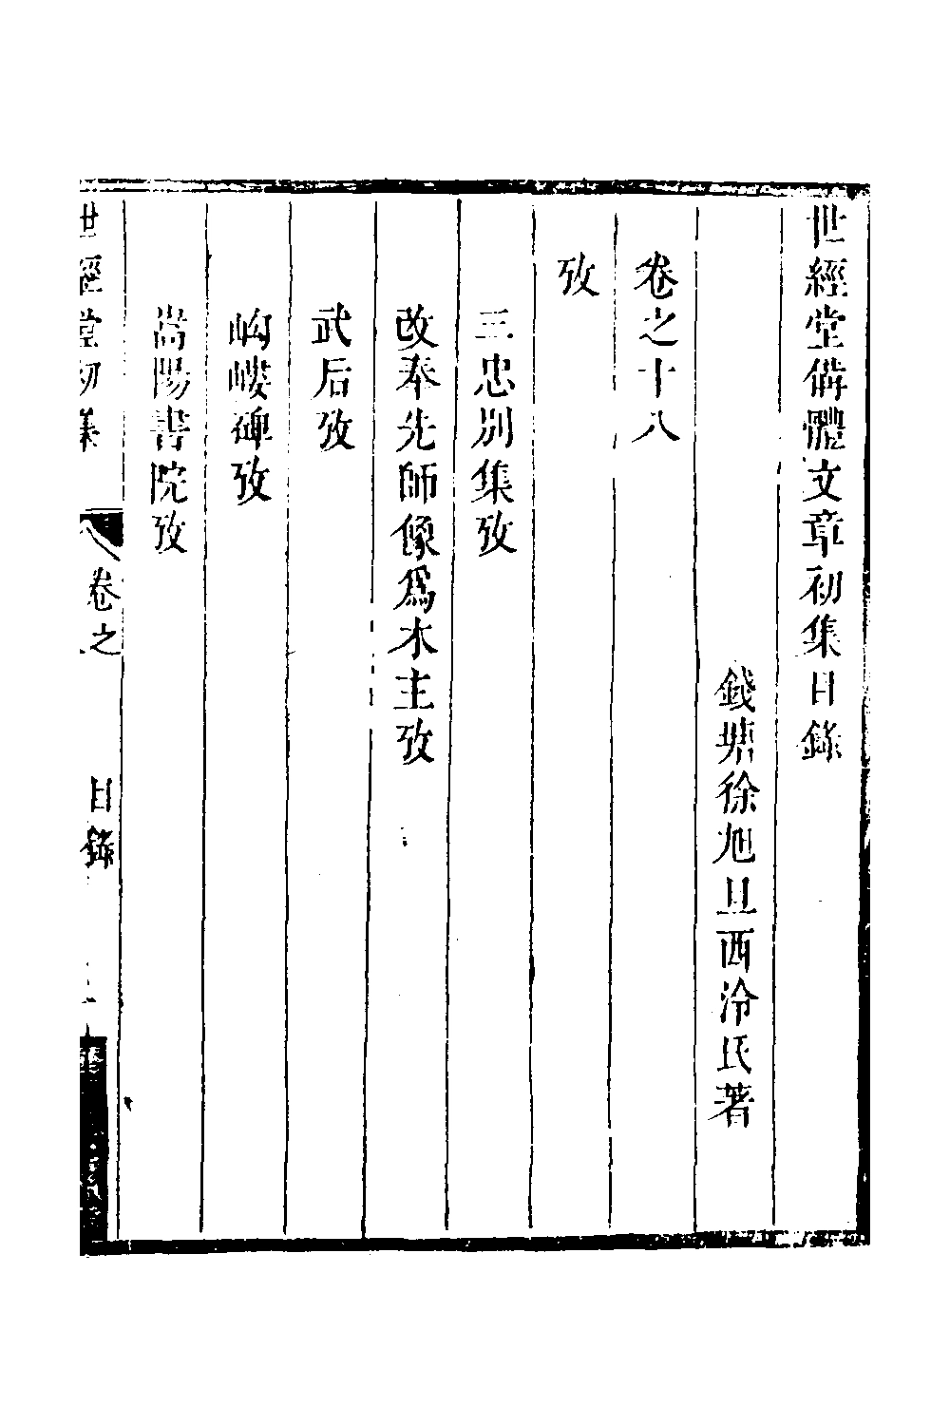 世經堂備體文章初集目錄
錢塘徐旭旦西泠氏著
卷之十八
攷
三忠別集攷
改奉先師像爲木主攷
武后攷
岣嶁碑攷
嵩陽書院攷
世經堂初集
卷之
目錄